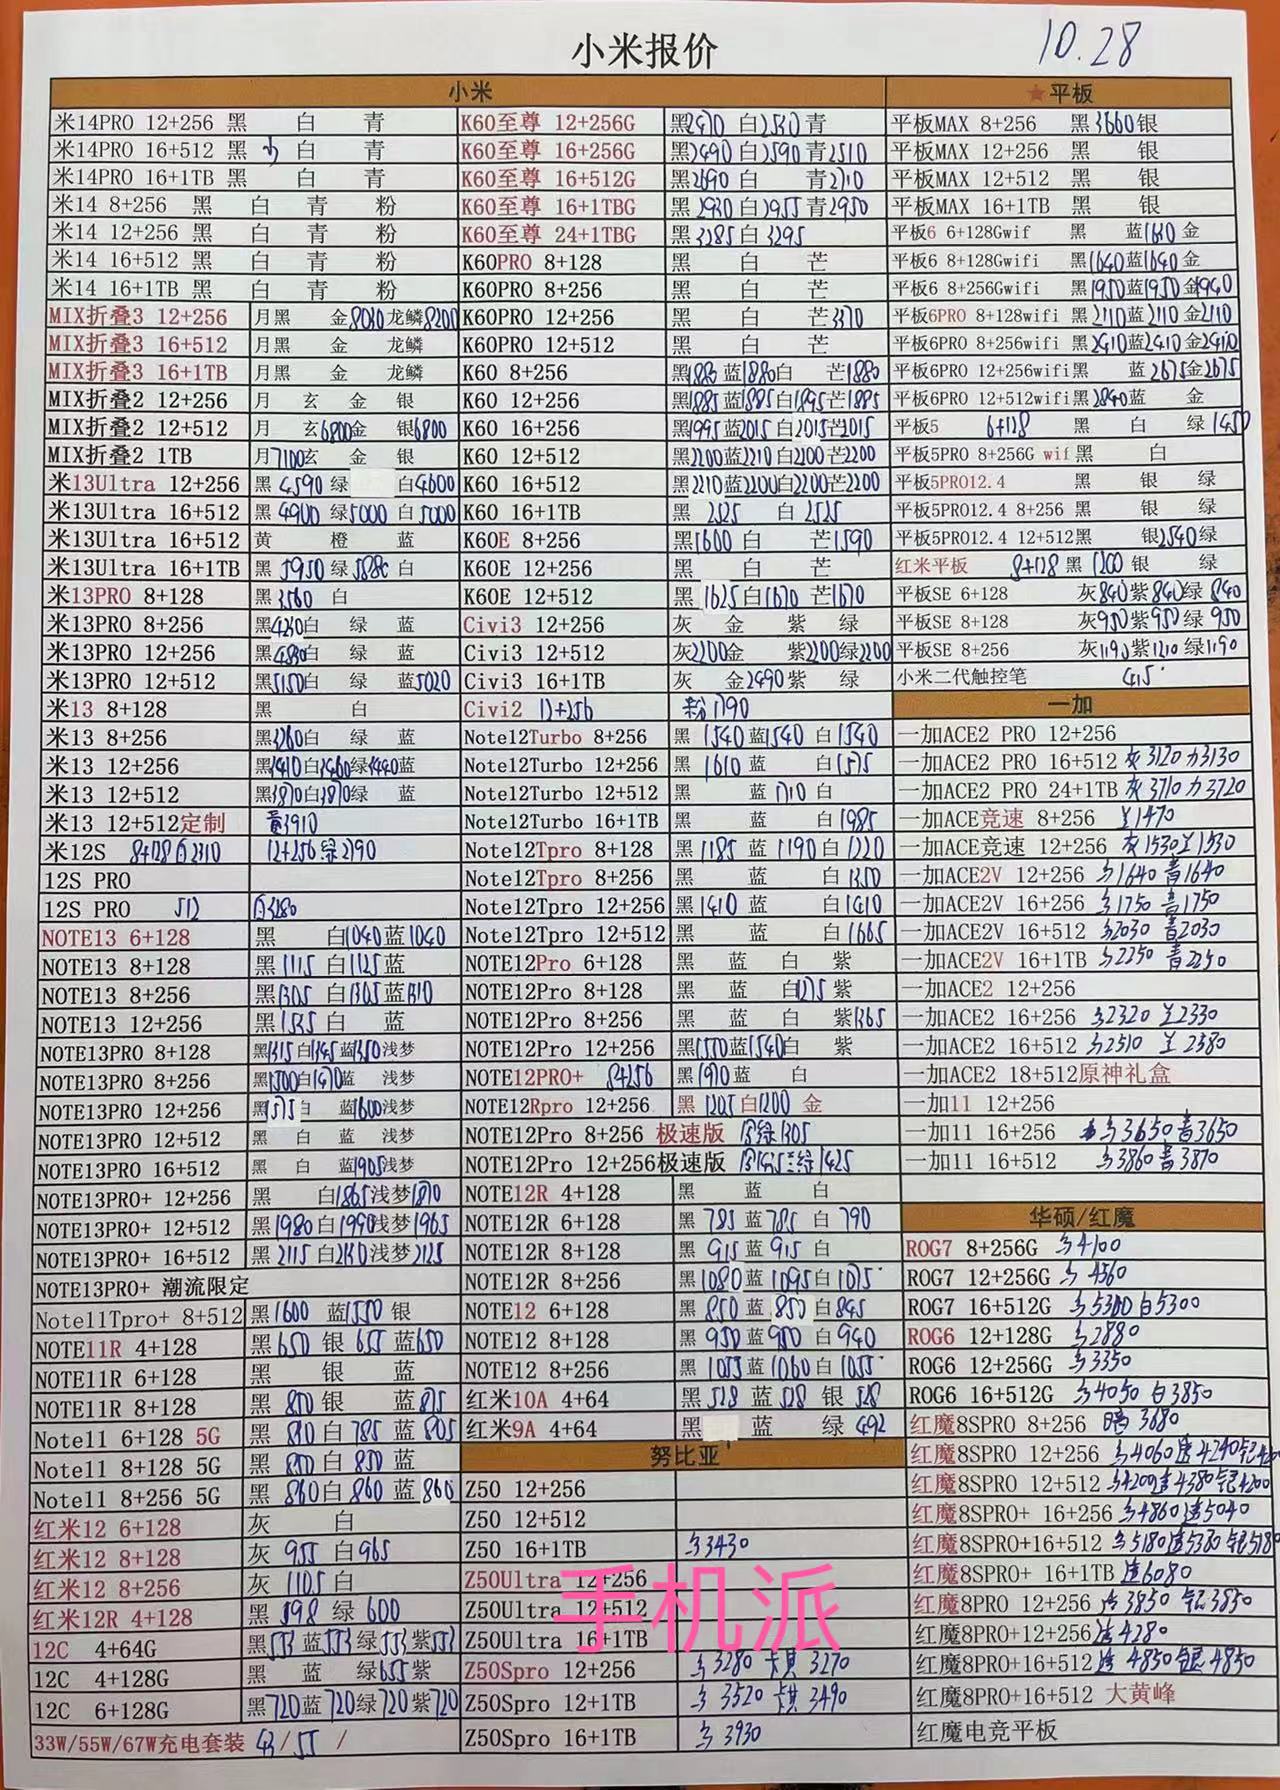 小米报价
10.28
小米
米14PRO 12+256 黑 白 青
米14PRO 16+512 黑 白 青
米14PRO 16+1TB 黑 白 青
米14 8+256 黑 白 青 粉
米14 12+256 黑 白 青 粉
米14 16+512 黑 白 青 粉
米14 16+1TB 黑 白 青 粉
MIX折叠3 12+256 月黑 金8030龙鳞8200
MIX折叠3 16+512 月黑 金 龙鳞
MIX折叠3 16+1TB 月黑 金 龙鳞
MIX折叠2 12+256 月 玄 金 银
MIX折叠2 12+512 月 玄6800金 银6800
MIX折叠2 1TB 月7100玄 金 银
米13Ultra 12+256 黑 4590 绿 白4600
米13Ultra 16+512 黑 4900 绿5000 白5000
米13Ultra 16+512 黄 橙 蓝
米13Ultra 16+1TB 黑 5950 绿 白
米13PRO 8+128 黑3560 白
米13PRO 8+256 黑 白 绿 蓝
米13PRO 12+256 黑 白 绿 蓝
米13PRO 12+512 黑5150白 绿 蓝5020
米13 8+128 黑 白
米13 8+256 黑3260白 绿 蓝
米13 12+256 黑3410白3460绿3440蓝
米13 12+512 黑3870白3870绿 蓝
米13 12+512定制 3910
米12S 8+128白2310 12+256绿2290
12S PRO
12S PRO 512 白3280
NOTE13 6+128 黑 白1040蓝1040
NOTE13 8+128 黑1115 白1125蓝
NOTE13 8+256 黑1305 白1305蓝1310
NOTE13 12+256 黑1535白 蓝
NOTE13PRO 8+128 黑1315白1345蓝1350浅梦
NOTE13PRO 8+256 黑1500白1470蓝 浅梦
NOTE13PRO 12+256 黑1575白 蓝1600浅梦
NOTE13PRO 12+512 黑 白 蓝 浅梦
NOTE13PRO 16+512 黑 白 蓝1905浅梦
NOTE13PRO+ 12+256 黑 白1865浅梦1870
NOTE13PRO+ 12+512 黑1980白1990浅梦1965
NOTE13PRO+ 16+512 黑2115白2130浅梦2125
NOTE13PRO+ 潮流限定
Note11Tpro+ 8+512 黑1600 蓝1550 银
NOTE11R 4+128 黑650 银 655 蓝650
NOTE11R 6+128 黑 银 蓝
NOTE11R 8+128 黑 850银 蓝875
Note11 6+128 5G 黑 810白 785 蓝 805
Note11 8+128 5G 黑 850白 850蓝
Note11 8+256 5G 黑 860白 860 蓝 860
红米12 6+128 灰 白
红米12 8+128 灰 955 白965
红米12 8+256 灰 1105白
红米12R 4+128 黑 598 绿 600
12C 4+64G 黑553 蓝553绿553紫553
12C 4+128G 黑 蓝 绿655紫
12C 6+128G 黑720蓝720绿720紫720
33W/55W/67W充电套装 43/55 /
K60至尊 12+256G 黑2470 白2530青
K60至尊 16+256G 黑2490白2590青2510
K60至尊 16+512G 黑2690白 青2710
K60至尊 16+1TBG 黑2930白2955青2950
K60至尊 24+1TBG 黑3285白3295
K60PRO 8+128 黑 白 芒
K60PRO 8+256 黑 白 芒
K60PRO 12+256 黑 白 芒
K60PRO 12+512 黑 白 芒
K60 8+256 黑1880蓝1880白 芒1880
K60 12+256 黑1885蓝1885白1895芒1885
K60 16+256 黑1995蓝2015白2015芒2015
K60 12+512 黑2200蓝2210白2200芒2200
K60 16+512 黑2210蓝2200白2200芒2200
K60 16+1TB 黑 2525 白 2525
K60E 8+256 黑1600白 芒1590
K60E 12+256 黑 白 芒
K60E 12+512 黑1625白1670芒1670
Civi3 12+256 灰 金 紫 绿
Civi3 12+512 灰2200金 紫2200绿2200
Civi3 16+1TB 灰 金2490紫 绿
Civi2 12+256 粉1790
Note12Turbo 8+256 黑 1540蓝1540 白1540
Note12Turbo 12+256 黑 1610 蓝 白1575
Note12Turbo 12+512 黑 蓝1710白
Note12Turbo 16+1TB 黑 蓝 白1985
Note12Tpro 8+128 黑1185蓝1190白1220
Note12Tpro 8+256 黑 蓝 白1350
Note12Tpro 12+256 黑1410 蓝 白1410
Note12Tpro 12+512 黑 蓝 白1665
NOTE12Pro 6+128 黑 蓝 白 紫
NOTE12Pro 8+128 黑 蓝 白1275紫
NOTE12Pro 8+256 黑 蓝 白 紫1365
NOTE12Pro 12+256 黑1550蓝1540白 紫
NOTE12PRO+ 8+256 黑1970蓝 白
NOTE12Rpro 12+256 黑 1205白1200 金
NOTE12Pro 8+256 极速版 1305
NOTE12Pro 12+256极速版 1425
NOTE12R 4+128 黑 蓝 白
NOTE12R 6+128 黑785蓝785 白 790
NOTE12R 8+128 黑915蓝915 白
NOTE12R 8+256 黑1080蓝1095白1075
NOTE12 6+128 黑850蓝850白845
NOTE12 8+128 黑950蓝950白940
NOTE12 8+256 黑1055蓝1060白1055
红米10A 4+64 黑528蓝528 银 528
红米9A 4+64 黑 蓝 绿 492
努比亚
Z50 12+256
Z50 12+512
Z50 16+1TB 3430
Z50Ultra 12+256
Z50Ultra 12+512
Z50Ultra 16+1TB
Z50Spro 12+256 3280 卡其 3270
Z50Spro 12+1TB 3520 卡其 3490
Z50Spro 16+1TB 3930
★平板
平板MAX 8+256 黑3660银
平板MAX 12+256 黑 银
平板MAX 12+512 黑 银
平板MAX 16+1TB 黑 银
平板6 6+128Gwif 黑 蓝1610金
平板6 8+128Gwifi 黑1640蓝1640金
平板6 8+256Gwifi 黑1950蓝1950金1940
平板6PRO 8+128wifi 黑2110蓝2110金2110
平板6PRO 8+256wifi 黑2410蓝2410金2410
平板6PRO 12+256wifi黑 蓝2675金2675
平板6PRO 12+512wifi黑2840蓝 金
平板5 6+128 黑 白 绿1450
平板5PRO 8+256G wif黑 白
平板5PRO12.4 黑 银 绿
平板5PRO12.4 8+256 黑 银 绿
平板5PRO12.4 12+512黑 银2540绿
红米平板 8+128黑 1200银 绿
平板SE 6+128 灰840紫840绿 840
平板SE 8+128 灰950紫950绿 950
平板SE 8+256 灰1190紫1210绿1190
小米二代触控笔 415
一加
一加ACE2 PRO 12+256
一加ACE2 PRO 16+512 灰3120 3130
一加ACE2 PRO 24+1TB 灰3710 3720
一加ACE竞速 8+256 1470
一加ACE竞速 12+256 灰1530 1530
一加ACE2V 12+256 1640 青1640
一加ACE2V 16+256 1750 青1750
一加ACE2V 16+512 2030 青2030
一加ACE2V 16+1TB 2250 青2250
一加ACE2 12+256
一加ACE2 16+256 2320 2330
一加ACE2 16+512 2510 2380
一加ACE2 18+512原神礼盒
一加11 12+256
一加11 16+256 3650青3650
一加11 16+512 3860青3870
华硕/红魔
ROG7 8+256G 4100
ROG7 12+256G 4560
ROG7 16+512G 5300白5300
ROG6 12+128G 2880
ROG6 12+256G 3350
ROG6 16+512G 4050 白3850
红魔8SPRO 8+256 暗 3680
红魔8SPRO 12+256 4060透4240
红魔8SPRO 12+512 4200透4380银4200
红魔8SPRO+ 16+256 4860透5040
红魔8SPRO+16+512 5180透5380银5180
红魔8SPRO+ 16+1TB 透6080
红魔8PRO 12+256 3850 银3850
红魔8PRO+12+256透4280
红魔8PRO+16+512透 4850银4850
红魔8PRO+16+512 大黄峰
红魔电竞平板
手机派